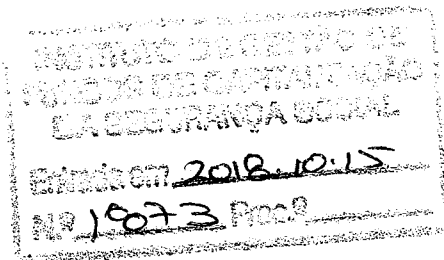 INSTITUTO DE GESTÃO DE
FUNDOS DE CAPITALIZAÇÃO
DA SEGURANÇA SOCIAL
Entrada em 2018.10.15
N.º Proc.º